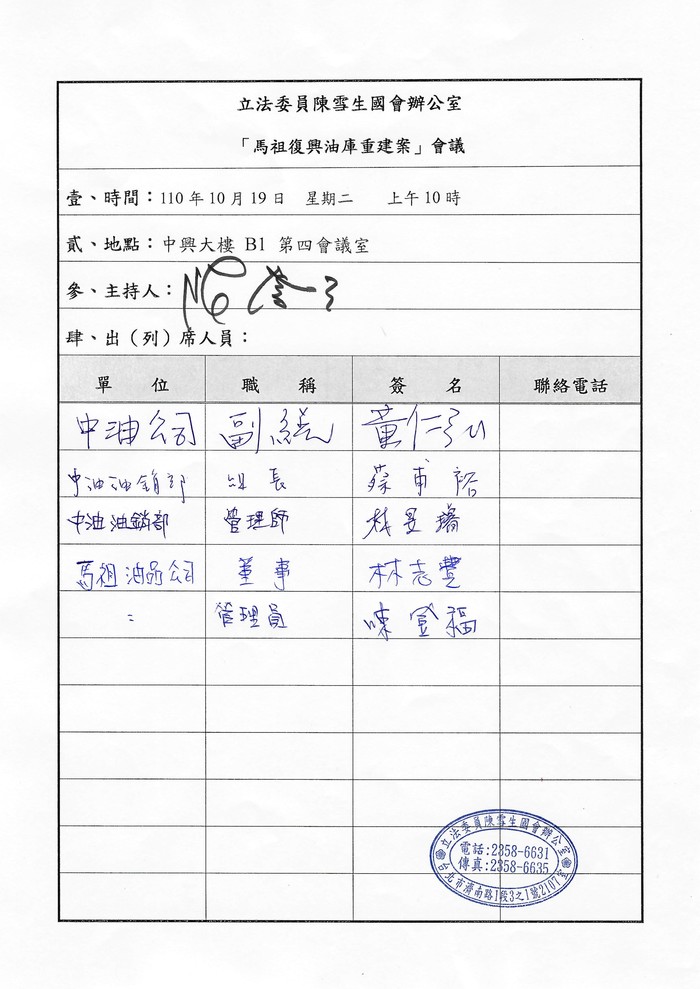 立法委員陳雪生國會辦公室
「馬祖復興油庫重建案」會議
壹、時間：110年10月19日 星期二 上午10時
貳、地點：中興大樓 B1 第四會議室
參、主持人：
肆、出（列）席人員：
單位 職稱 簽名 聯絡電話
中油公司 副總 黃仁弘
中油油銷部 組長 蔡甫裕
中油油銷部 管理師 林旻
馬祖油品公司 董事 林志豐
〃 管理員 陳金福
立法委員陳雪生國會辦公室
電話:2358-6631
傳真:2358-6635
台北市濟南路1段3之1號2107室